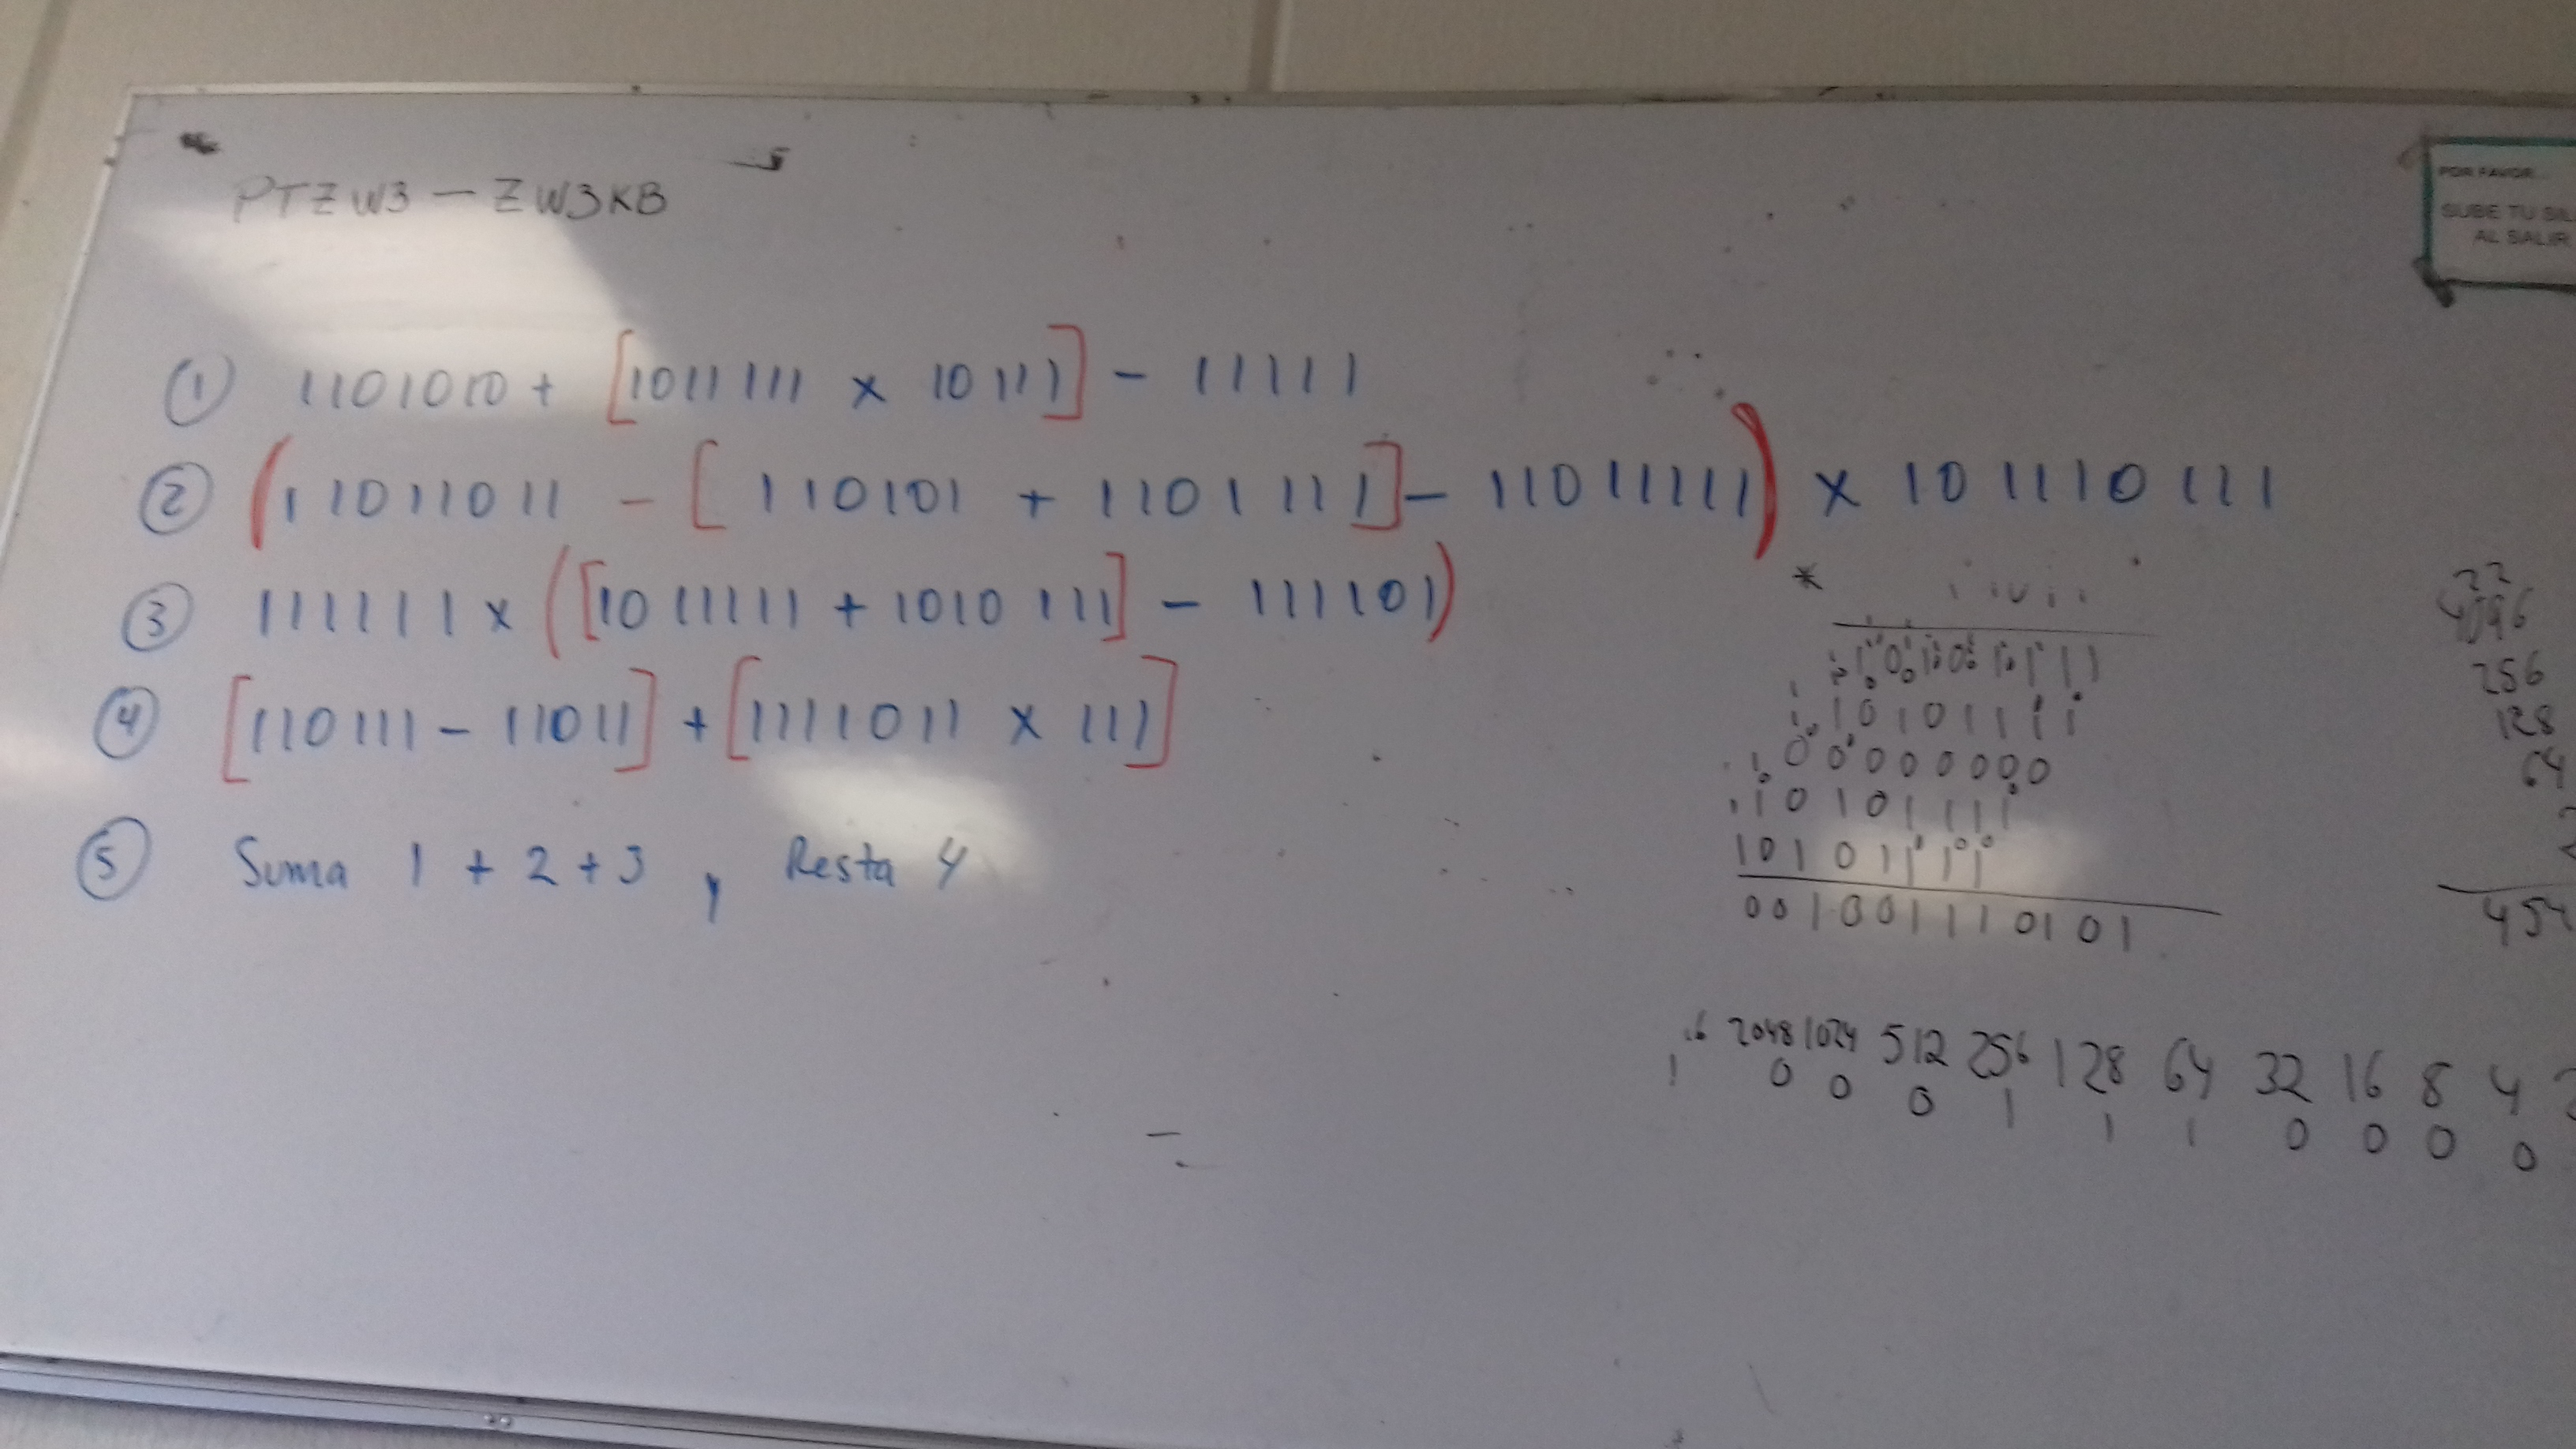 PTZW3 - ZW3KB
POR FAVOR...
SUBE TU SIL
AL SALIR
① 1101010 + [1011111 x 10111] - 11111
② (11011011 - [110101 + 1101111] - 11011111) x 101110111
③ 111111 x ([1011111 + 1010111] - 111101)
④ [110111 - 11011] + [1111011 x 111]
⑤ Suma 1 + 2 + 3 y Resta 4
*
10101111
00000000
10101111
10101111
001001110101
22
4096
256
128
64
454
2048 1024 512 256 128 64 32 16 8 4
1 0 0 0 1 1 1 0 0 0 0